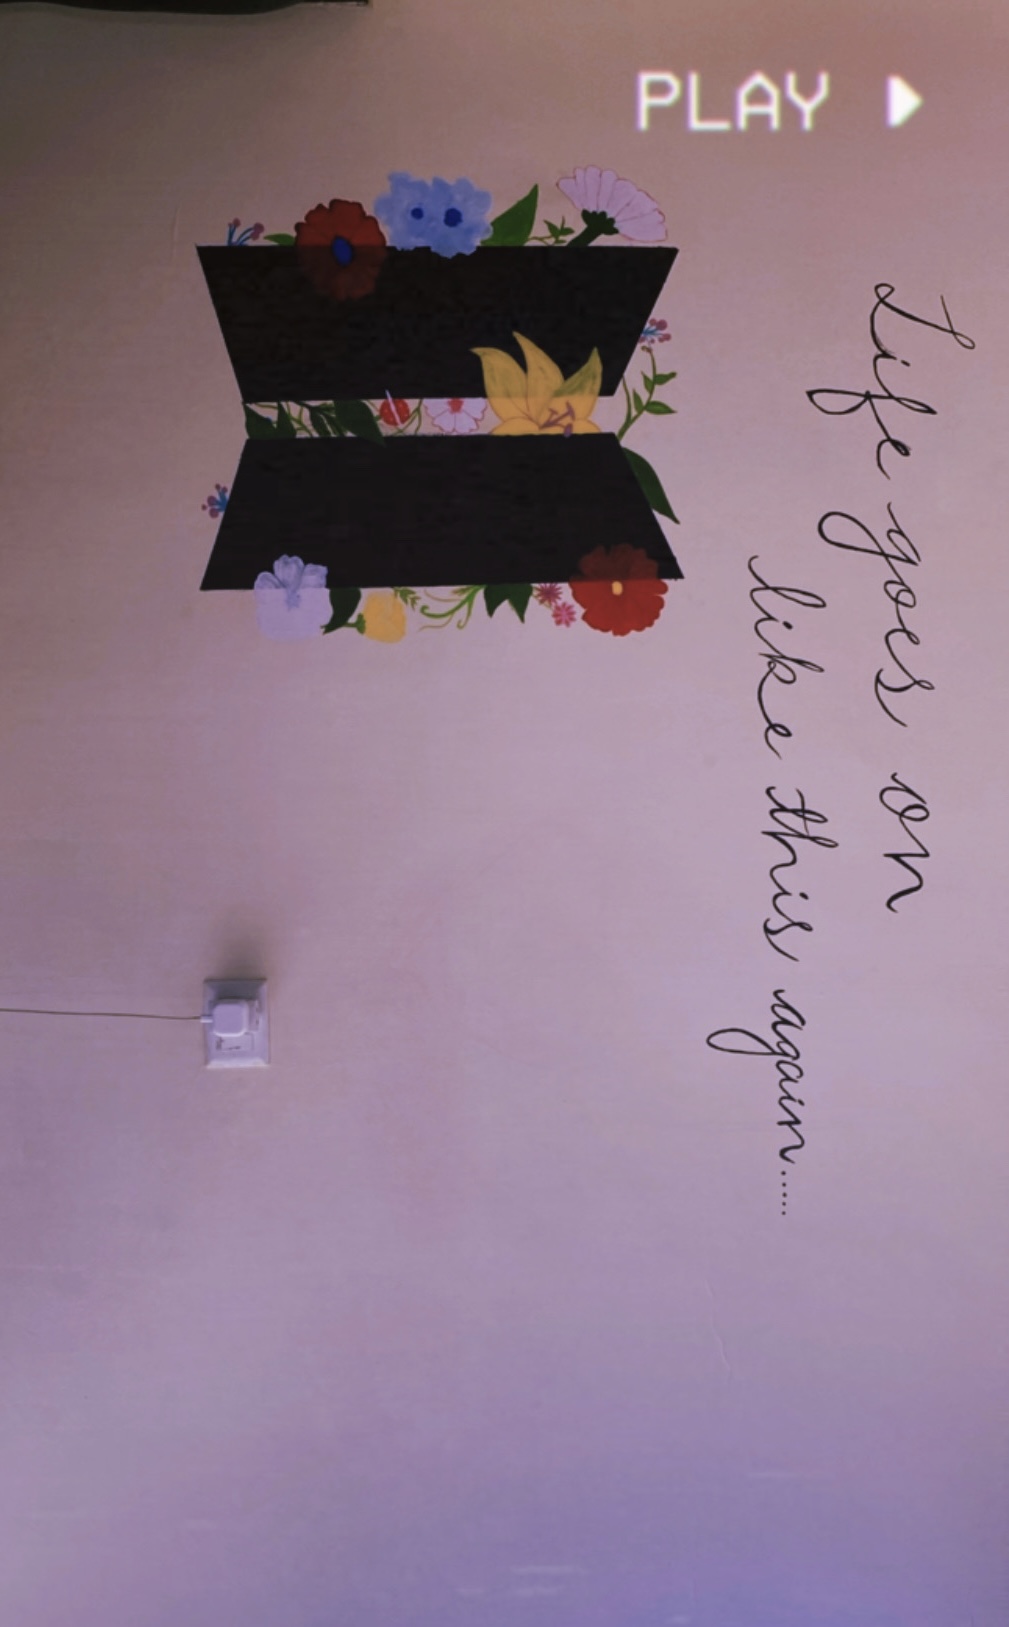 PLAY
Life goes on
like this again......